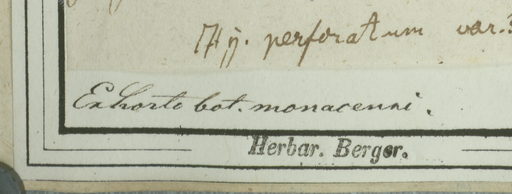 Hy. perforatum var.
Ex horto bot. monacensi.
Herbar. Berger.